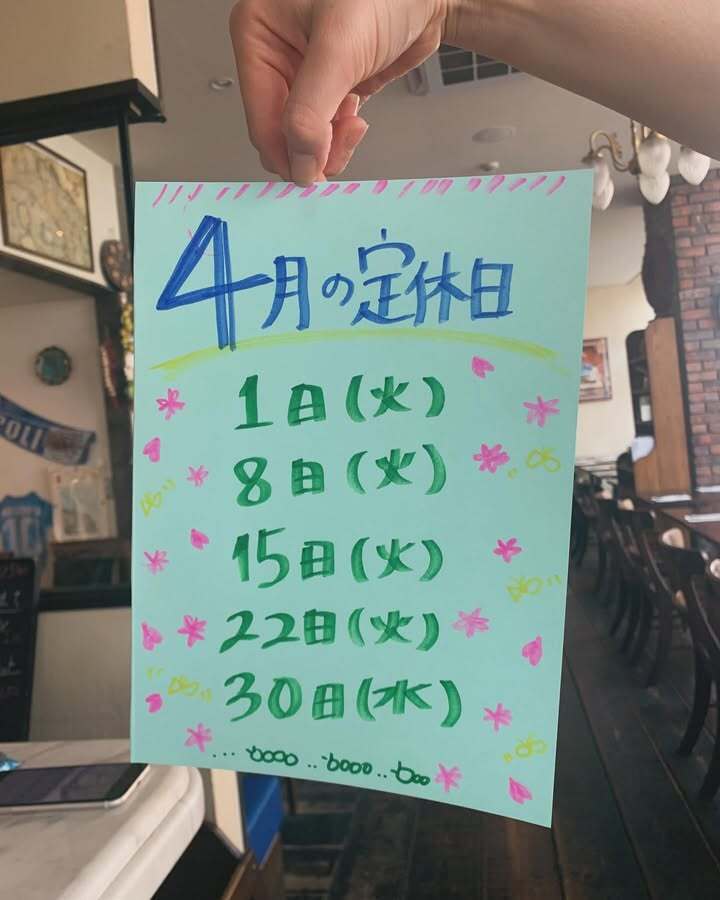 4月の定休日
1日(火)
8日(火)
15日(火)
22日(火)
30日(水)